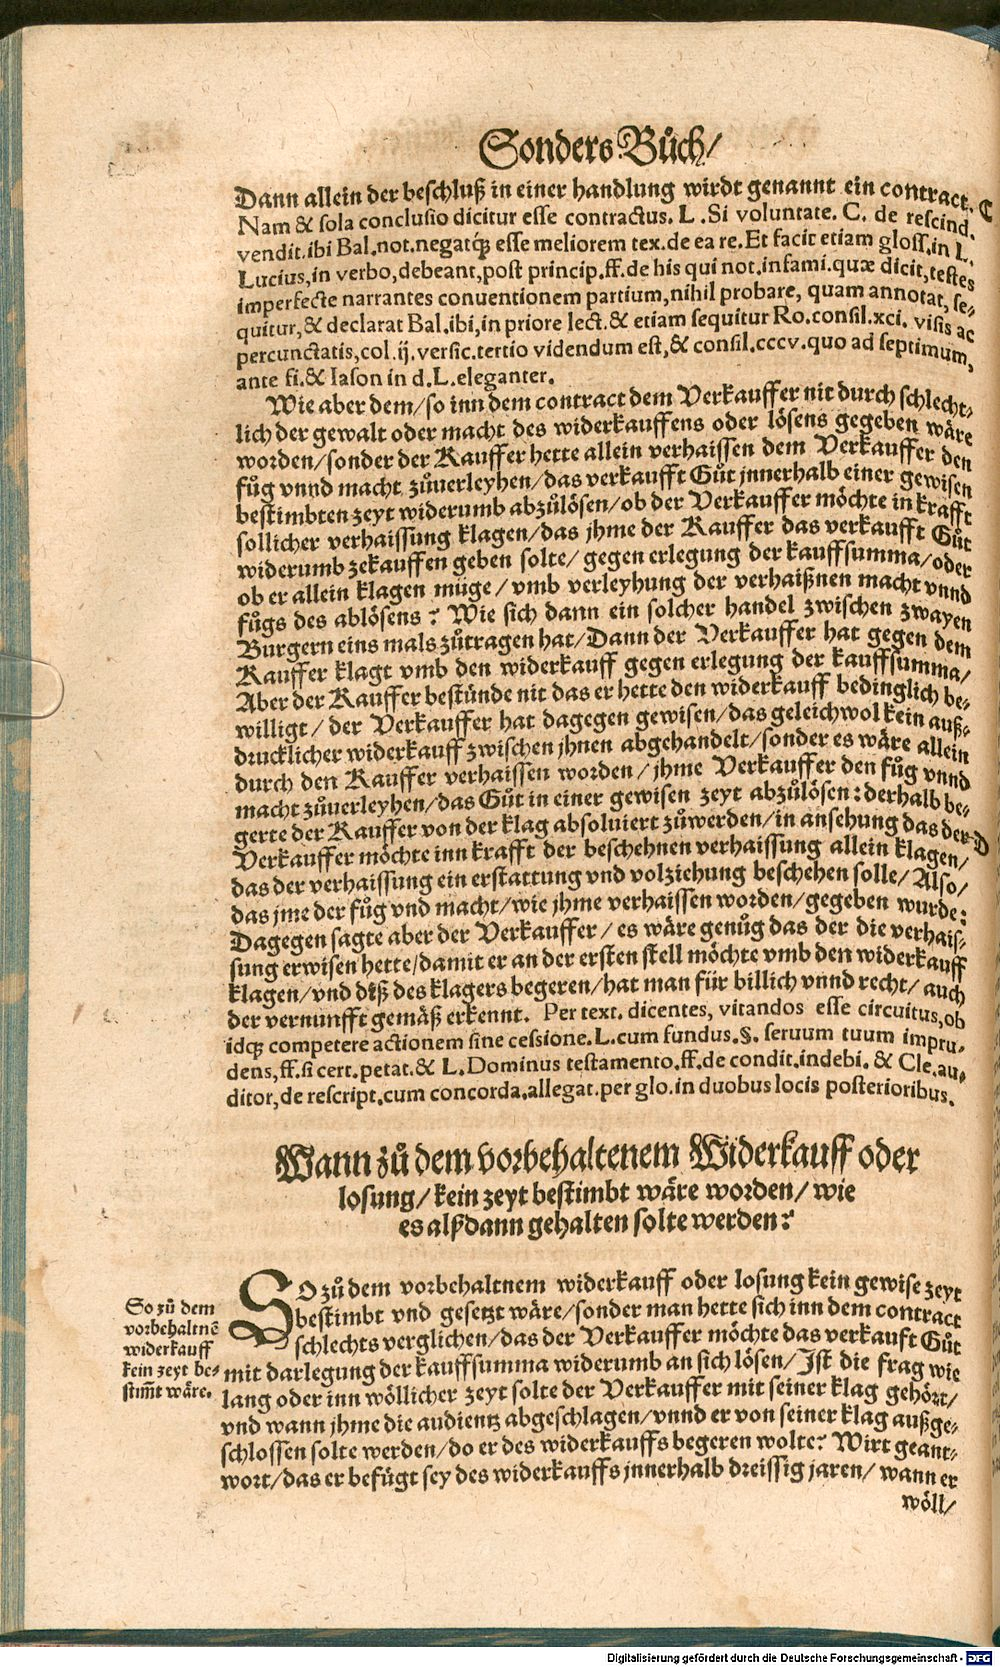 Sonders Bůch/
Dann allein der beschluß in einer handlung wirdt genannt ein contract. C
Nam & sola conclusio dicitur esse contractus. L. Si voluntate. C. de rescind.
vendit. ibi Bal. not. negatq́; esse meliorem tex. de ea re. Et facit etiam gloss. in L.
Lucius, in verbo, debeant, post princip. ff. de his qui not. infami. quæ dicit, testes
imperfecte narrantes conuentionem partium, nihil probare, quam annotat, se-
quitur, & declarat Bal. ibi, in priore lect. & etiam sequitur Ro. consil. xci. visis ac
percunctatis, col. ij. versic. tertio videndum est, & consil. cccv. quo ad septimum,
ante fi. & Iason in d. L. eleganter.
Wie aber dem/ so inn dem contract dem Verkauffer nit durch schlecht-
lich der gewalt oder macht des widerkauffens oder lösens gegeben wäre
worden/ sonder der Kauffer hette allein verhaissen dem Verkauffer den
fůg vnnd macht zůuerleyhen/ das verkaufft Gůt jnnerhalb einer gewisen
bestimbten zeyt widerumb abzůlösen/ ob der Verkauffer möchte in krafft
sollicher verhaissung klagen/ das jhme der Kauffer das verkaufft Gůt
widerumb zekauffen geben solte/ gegen erlegung der kauffsumma/ oder
ob er allein klagen müge/ vmb verleyhung der verhaißnen macht vnnd
fůgs des ablösens? Wie sich dann ein solcher handel zwischen zwayen
Burgern eins mals zůtragen hat/ Dann der Verkauffer hat gegen dem
Kauffer klagt vmb den widerkauff gegen erlegung der kauffsumma/
Aber der Kauffer bestünde nit das er hette den widerkauff bedinglich be-
willigt/ der Verkauffer hat dagegen gewisen/ das geleichwol kein auß-
drucklicher widerkauff zwischen jhnen abgehandelt/ sonder es wäre allein
durch den Kauffer verhaissen worden/ jhme Verkauffer den fůg vnnd
macht zůuerleyhen/ das Gůt in einer gewisen zeyt abzůlösen: derhalb be-
gerte der Kauffer von der klag absoluiert zůwerden/ in ansehung das der D
Verkauffer möchte inn krafft der beschehnen verhaissung allein klagen/
das der verhaissung ein erstattung vnd volziehung beschehen solle/ Also/
das jme der fůg vnd macht/ wie jhme verhaissen worden/ gegeben wurde:
Dagegen sagte aber der Verkauffer/ es wäre genůg das der die verhais-
sung erwisen hette/ damit er an der ersten stell möchte vmb den widerkauff
klagen/ vnd diß des klagers begeren/ hat man für billich vnnd recht/ auch
der vernunfft gemäß erkennt. Per text. dicentes, vitandos esse circuitus, ob
idq; competere actionem sine cessione. L. cum fundus. §. seruum tuum impru-
dens, ff. si cert. petat. & L. Dominus testamento. ff. de condit. indebi. & Cle. au-
ditor, de rescript. cum concorda. allegat. per glo. in duobus locis posterioribus.
Wann zů dem vorbehaltenem Widerkauff oder
losung/ kein zeyt bestimbt wäre worden/ wie
es alßdann gehalten solte werden?
So zů dem
vorbehaltnē
widerkauff
kein zeyt be-
stim̃t wäre.
SO zů dem vorbehaltnem widerkauff oder losung kein gewise zeyt
bestimbt vnd gesetzt wäre/ sonder man hette sich inn dem contract
schlechts verglichen/ das der Verkauffer möchte das verkauft Gůt
mit darlegung der kauffsumma widerumb an sich lösen/ Ist die frag wie
lang oder inn wöllicher zeyt solte der Verkauffer mit seiner klag gehört/
vnd wann jhme die audientz abgeschlagen/ vnnd er von seiner klag außge-
schlossen solte werden/ do er des widerkauffs begeren wolte? Wirt geant-
wort/ das er befůgt sey des widerkauffs jnnerhalb dreissig jaren/ wann er
wöll/
Digitalisierung gefördert durch die Deutsche Forschungsgemeinschaft - DFG